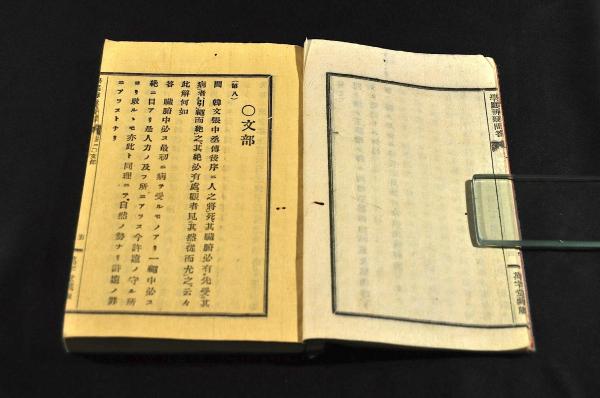 ○文部
(第八)
問 韓文張中丞傳後序ニ人之將死、其臟腑必有先受其
病者、引繩而絶之、其絶必有處、觀者見其然從而尤之云々
此解何如
答 臟腑中必ス最初ニ病ヲ受ルモノアリ一繩中必ス
絶ニ目アリ是人力ノ及フ所ニアラス今許遠ノ守ル所
ヨリ敗ルヽモ亦此ト同理ニテ自然ノ勢ナリ許遠ノ罪
ニアラストナリ